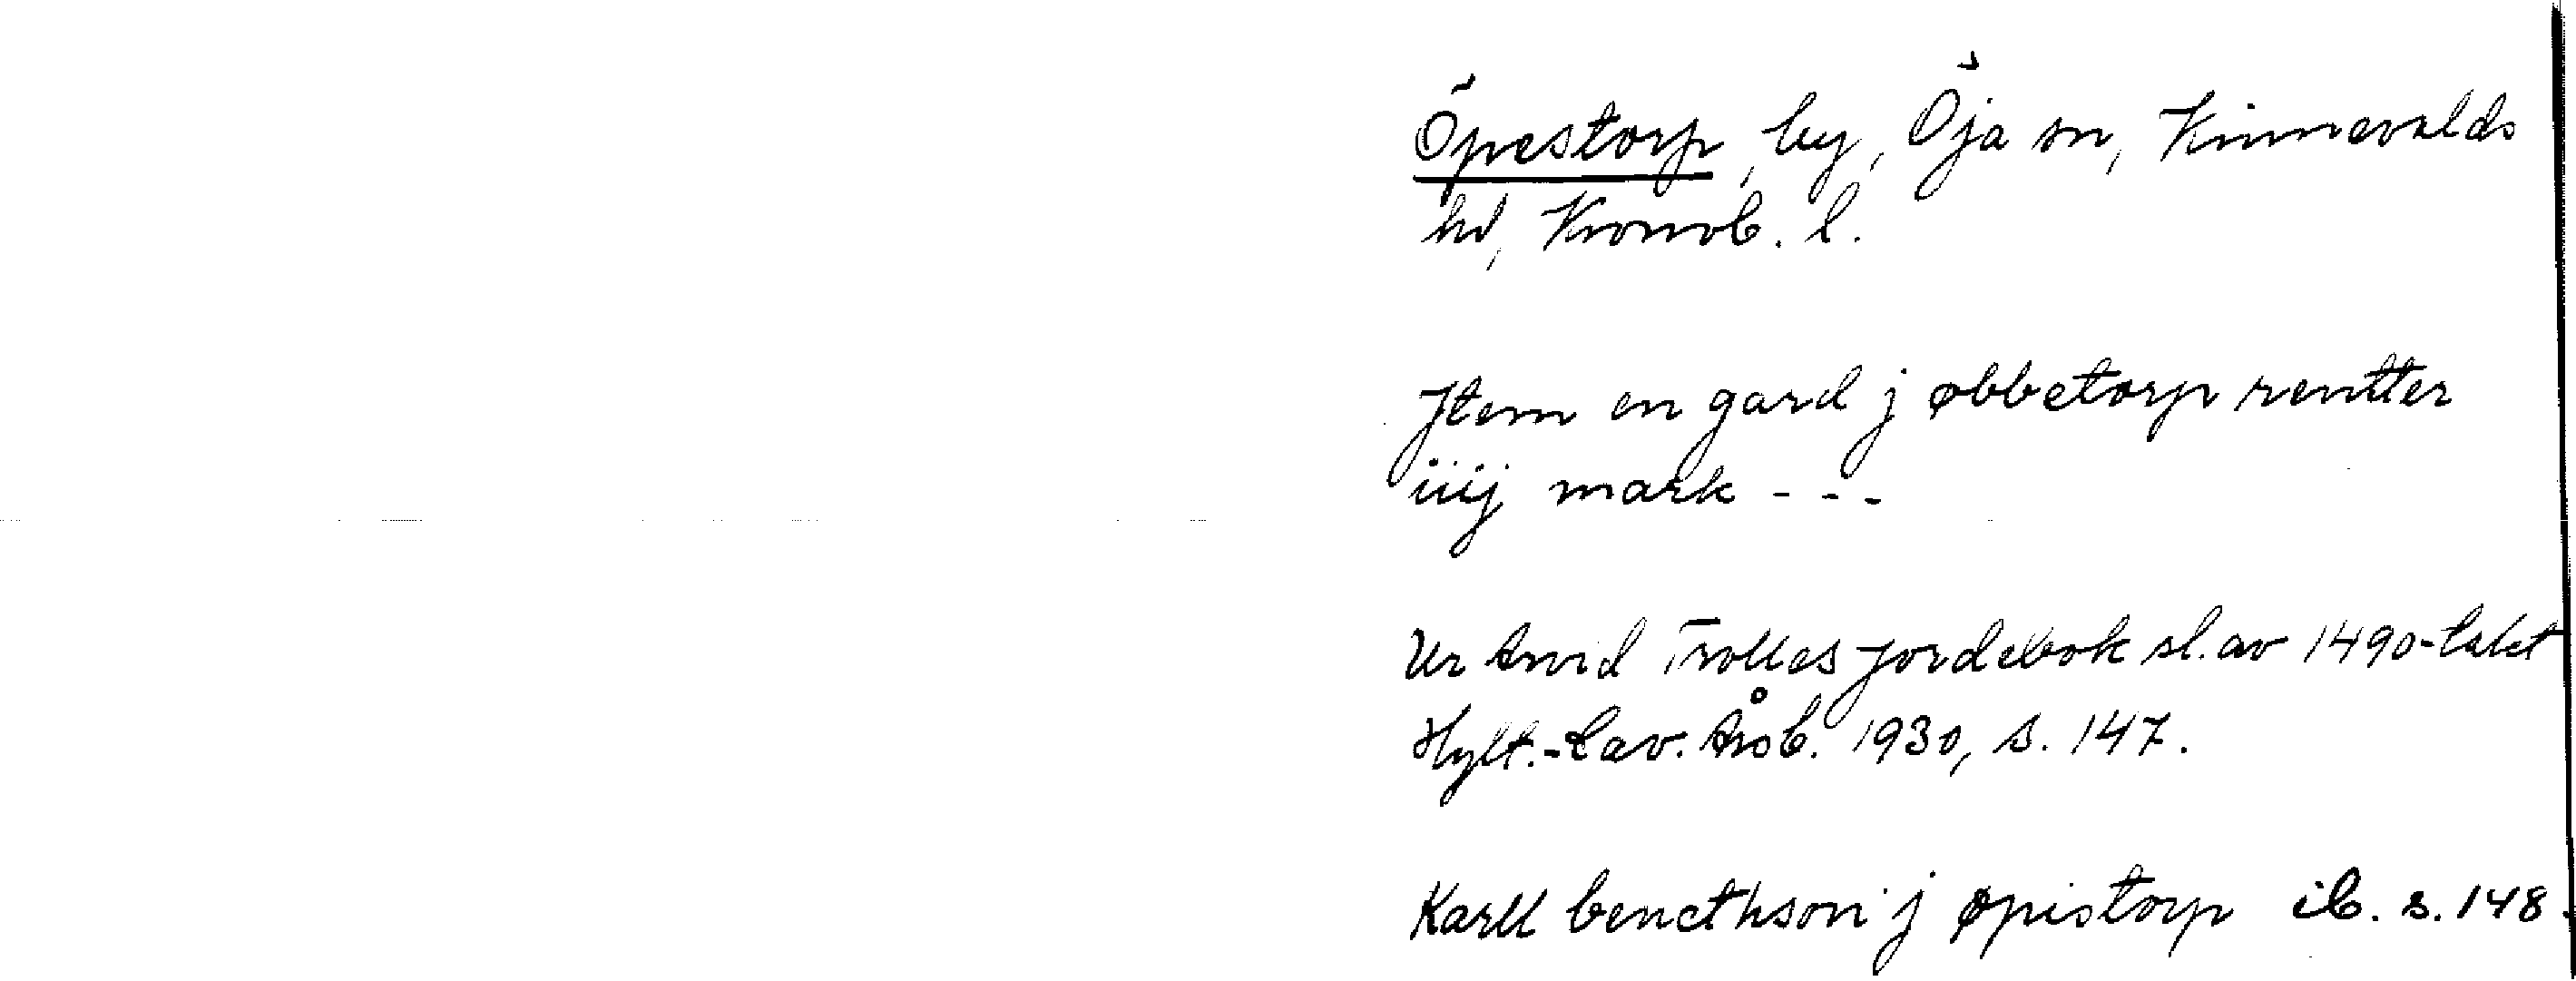 Öpestorp, by, Öja sn, Kinnevalds
hd, Kronob. l.
Jtem en gard j øbbetorp rentter
iiij mark - - -
Ur Arvid Trolles jordebok sl. av 1490-talet
Hylt.-Cav. Årsb. 1930, s. 147.
Karll bencthson j øpistorp ib. s. 148.